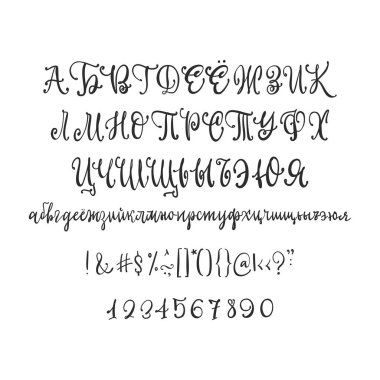 АБВГДЕЁЖЗИК
ЛМНОПРСТУФХ
ЦЧШЩЬЫЪЭЮЯ
абвгдеёжзийклмнопрстуфхцчшщьыъэюя
!&#$%^;[]*(){}@k‹?”
1234567890